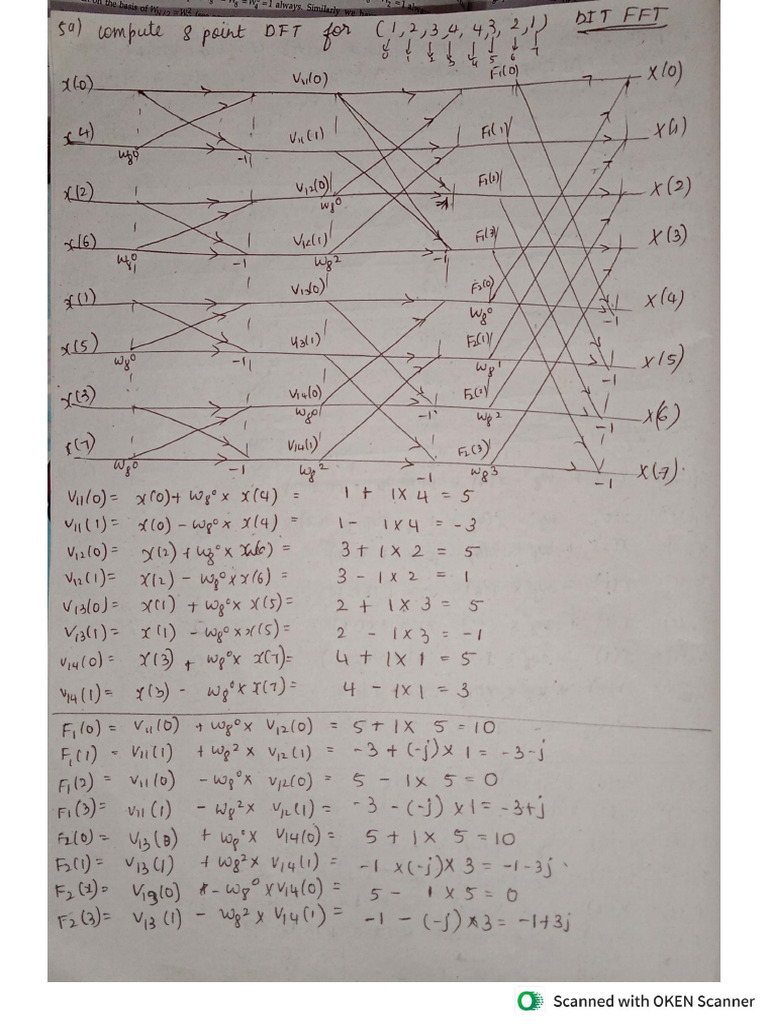 on the basis of W
= 1 always. Similarly we
5a) compute 8 point DFT for (1, 2, 3, 4, 4, 3, 2, 1) DIT FFT
0 1 2 3 4 5 6 7
x(0) V11(0) F1(0) X(0)
x(4) W8⁰ -1 V11(1) F1(1) X(1)
x(2) V12(0) W8⁰ F1(2) -1 X(2)
x(6) W8⁰ -1 V12(1) W8² F1(3) -1 X(3)
x(1) V13(0) F2(0) W8⁰ -1 X(4)
x(5) W8⁰ -1 V13(1) F2(1) W8¹ -1 X(5)
x(3) V14(0) W8⁰ -1 F2(2) W8² -1 X(6)
x(7) W8⁰ -1 V14(1) W8² -1 F2(3) W8³ -1 X(7)
V11(0) = x(0) + W8⁰ x x(4) = 1 + 1x4 = 5
V11(1) = x(0) - W8⁰ x x(4) = 1 - 1x4 = -3
V12(0) = x(2) + W8⁰ x x(6) = 3 + 1 x 2 = 5
V12(1) = x(2) - W8⁰ x x(6) = 3 - 1 x 2 = 1
V13(0) = x(1) + W8⁰ x x(5) = 2 + 1 x 3 = 5
V13(1) = x(1) - W8⁰ x x(5) = 2 - 1x3 = -1
V14(0) = x(3) + W8⁰ x x(7) = 4 + 1x1 = 5
V14(1) = x(3) - W8⁰ x x(7) = 4 - 1x1 = 3
F1(0) = V11(0) + W8⁰ x V12(0) = 5 + 1 x 5 = 10
F1(1) = V11(1) + W8² x V12(1) = -3 + (-j) x 1 = -3-j
F1(2) = V11(0) - W8⁰ x V12(0) = 5 - 1 x 5 = 0
F1(3) = V11(1) - W8² x V12(1) = -3 - (-j) x 1 = -3+j
F2(0) = V13(0) + W8⁰ x V14(0) = 5 + 1 x 5 = 10
F2(1) = V13(1) + W8² x V14(1) = -1 x (-j) x 3 = -1-3j
F2(2) = V13(0) - W8⁰ x V14(0) = 5 - 1 x 5 = 0
F2(3) = V13(1) - W8² x V14(1) = -1 - (-j) x 3 = -1+3j
Scanned with OKEN Scanner